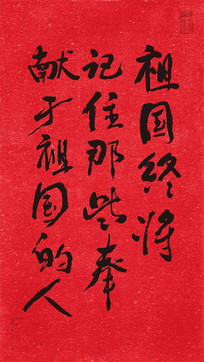 祖国终将
记住那些奉
献于祖国的人